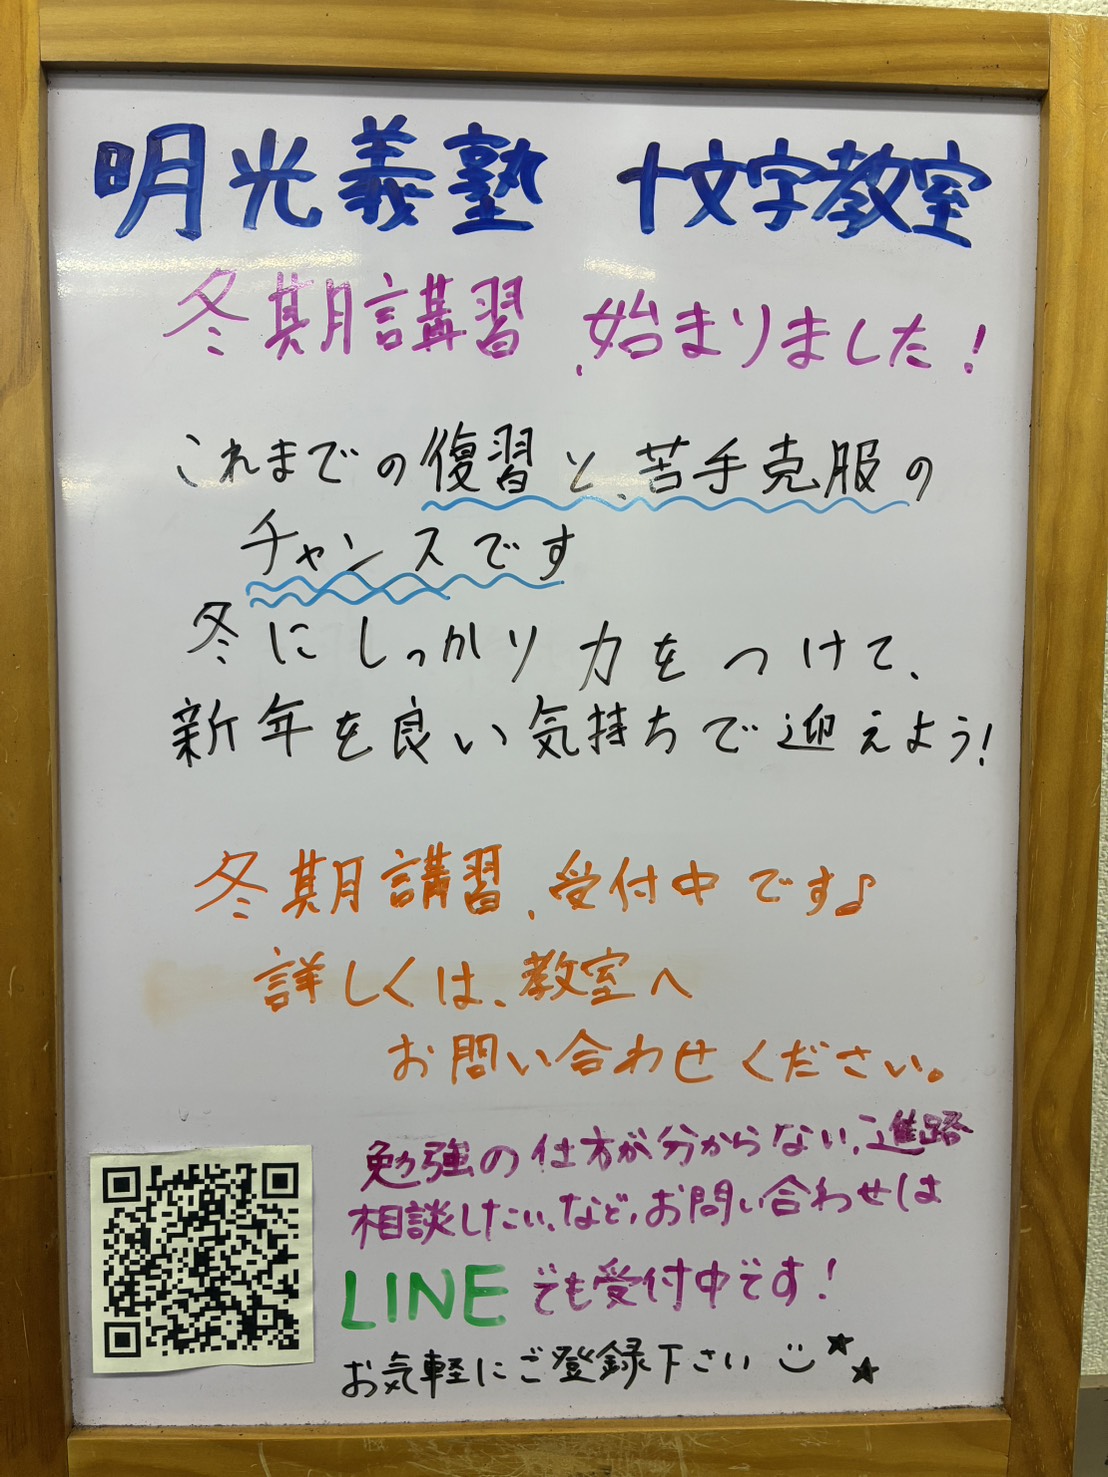 明光義塾 十文字教室
冬期講習、始まりました!
これまでの復習と、苦手克服の
チャンスです
冬にしっかり力をつけて、
新年を良い気持ちで迎えよう!
冬期講習、受付中です♪
詳しくは、教室へ
お問い合わせください。
勉強の仕方が分からない、進路
相談したい、など、お問い合わせは
LINEでも受付中です!
お気軽にご登録下さい